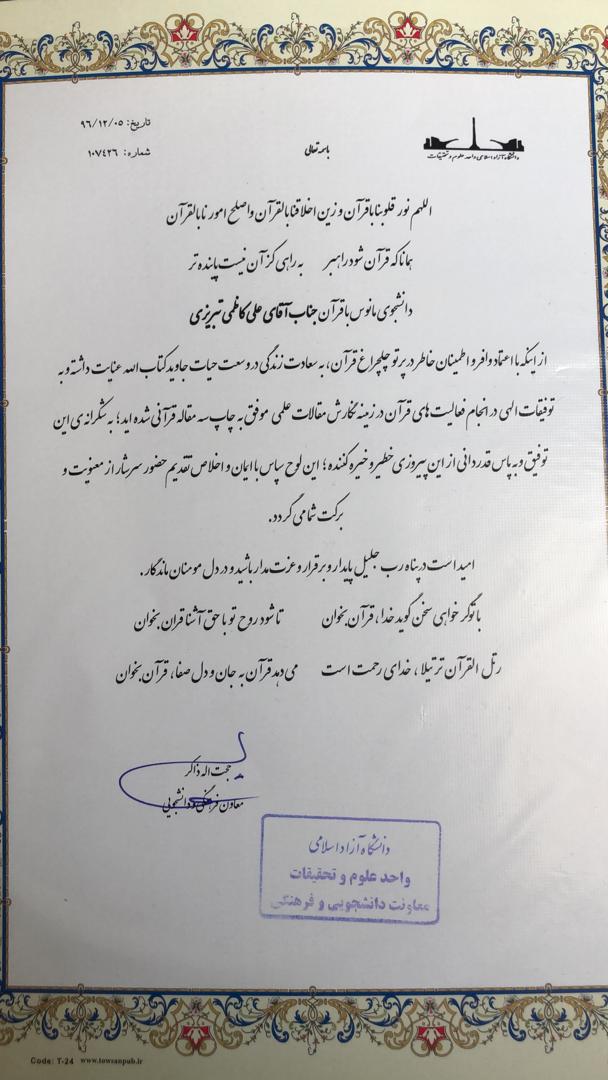 تاریخ: ۹۶/۱۲/۰۵
شماره: ۱۰۷۴۲۶
باسمه تعالی
دانشگاه آزاد اسلامی واحد علوم و تحقیقات
اللهم نور قلوبنا باقرآن و زین اخلاقنا بالقرآن واصلح امورنا بالقرآن
همانا که قرآن شود راهبر به راهی کز آن نیست پاینده تر
دانشجوی مانوس با قرآن جناب آقای علی کاظمی تبریزی
از اینکه با اعتماد وافر و اطمینان خاطر در پرتو چلچراغ قرآن، به سعادت زندگی در وسعت حیات جاوید کتاب الله عنایت داشته و به
توفیقات الهی در انجام فعالیت های قرآن در زمینه نگارش مقالات علمی موفق به چاپ سه مقاله قرآنی شده اید؛ به شکرانه ی این
توفیق و به پاس قدردانی از این پیروزی خطیر و خیره کننده؛ این لوح سپاس با ایمان و اخلاص تقدیم حضور سرشار از معنویت و
برکت شما می گردد.
امید است در پناه رب جلیل پایدار و برقرار و عزت مدار باشید و در دل مومنان ماندگار.
با تو گر خواهی سخن گوید خدا، قرآن بخوان تا شود روح تو با حق آشنا قران بخوان
رتل القرآن ترتیلا، خدای رحمت است می دهد قرآن به جان و دل صفا، قرآن بخوان
حجت اله ذاکر
معاون فرهنگی و دانشجویی
دانشگاه آزاد اسلامی
واحد علوم و تحقیقات
معاونت دانشجویی و فرهنگی
Code: T-24 www.towsanpub.ir